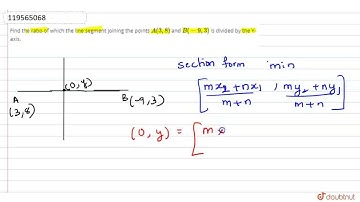 119565068
Find the ratio of which the line segment joining the points A(3, 8) and B(−9, 3) is divided by the Y-
axis.
section form m:n
[mx₂+nx₁/m+n , my₂+ny₁/m+n]
(0, y)
A
(3,8)
B(-9,3)
(0, y) = [m x
doubtnut